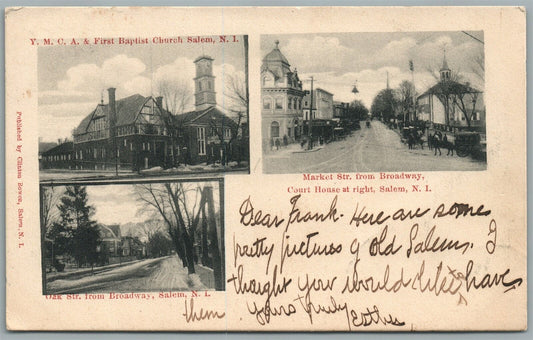 Y. M. C. A. & First Baptist Church Salem, N. I.
Market Str. from Broadway,
Court House at right, Salem, N. I.
Published by Clinton Bowen, Salem, N. I.
Oak Str. from Broadway, Salem, N. I.
Dear Frank. Here are some
pretty pictures of Old Salem. I
thought you would like to have
them
yours truly
Esther